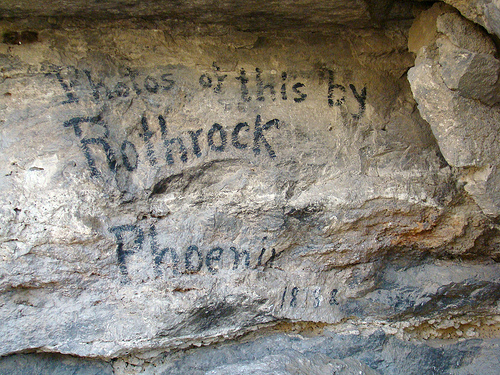 Photos of this by
Rothrock
Phoenix